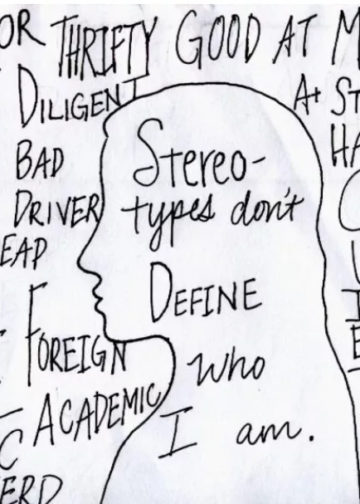 OR THRIFTY GOOD AT M
DILIGENT
A+ ST
BAD
HA
DRIVER
EAP
FOREIGN
ACADEMIC
C
ERD
Stereo-
types don't
DEFINE
who
I am.